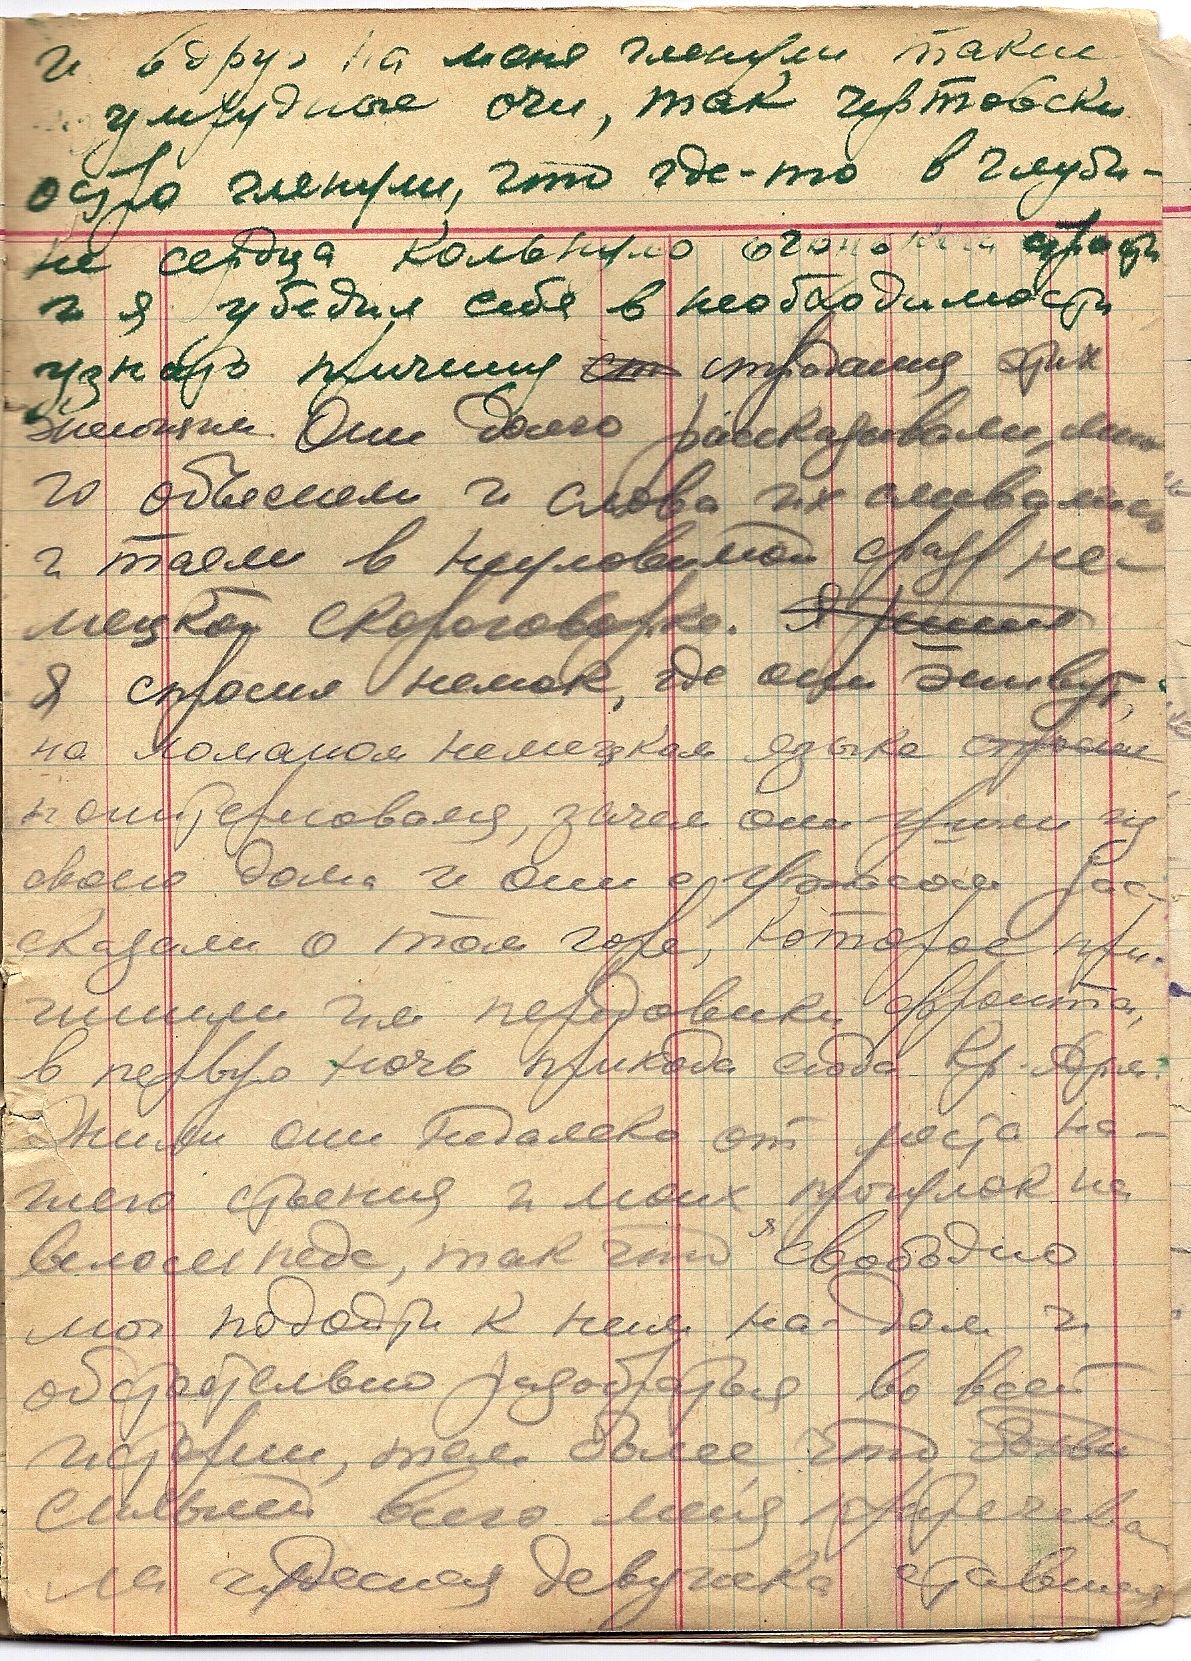 и вдруг на меня глянули такие
изумрудные очи, так чертовски
остро глянули, что где-то в глуби-
не сердца кольнуло огоньком страсти
и я убедил себя в необходимости
узнать причину страдания этих
женщин. Они долго рассказывали,
объясняли и слова их сливались
и таяли в неуловимой сразу не-
мецкой скороговорке. Я решил
Я спросил немок, где они живут,
на ломаном немецком языке спросил
поинтересовался, зачем они ушли из
своего дома и они с ужасом рас-
сказали о том горе, которое при-
чинили им передовики фронта,
в первую ночь прихода сюда Кр. Арм.
Жили они недалеко от места на-
шего стояния и моих прогулок на
велосипеде, так что я свободно
мог подойти к ним на-дом и
обстоятельно разобраться во всей
истории, тем более, что
сильней всего меня
ла чудесная девушка ставшая